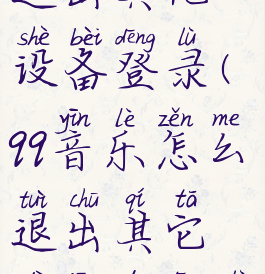 shè bèi dēng lù
设备登录(
yīn lè zěn me
99音乐怎么
tuì chū qí tā
退出其它